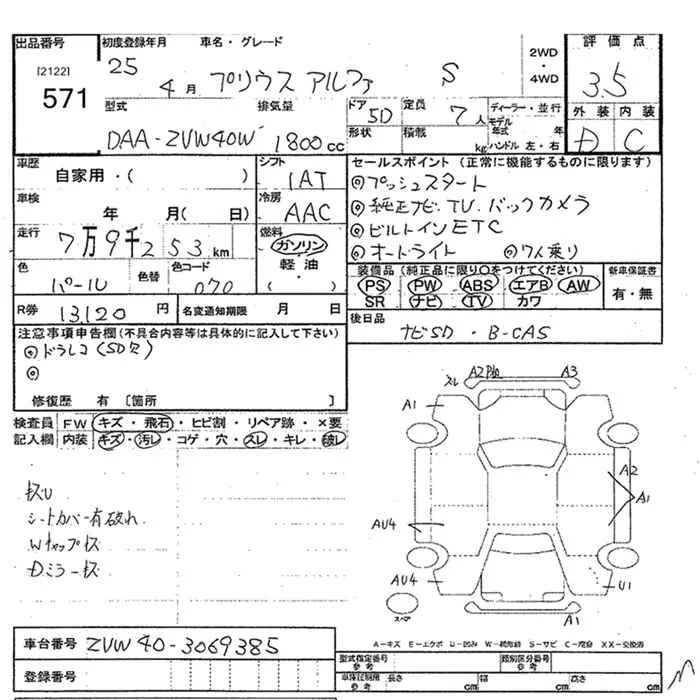 出品番号 初度登録年月 車名・グレード 2WD・4WD 評価点
[2122] 571 25 4月 プリウス アルファ S 3.5
外装 内装
D C
型式 排気量 ドア 定員 ディーラー・並行
DAA-ZVW40W 1800cc 5D 7人 モデル年式 年
形状 積載 kg ハンドル 左・右
車歴 シフト セールスポイント(正常に機能するものに限ります)
自家用・( ) IAT ◎プッシュスタート
車検 冷房 ◎純正ナビ、TV、バックカメラ
年 月(日) AAC ◎ビルトインETC
走行 燃料 ◎オートライト ◎7人乗り
7万9千253km ガソリン 軽油 ( )
色 色替 色コード
パール 070
装備品(純正品に限り○をつけてください) 新車保証書
PS PW ABS エアB AW 有・無
SR ナビ TV カワ
R券 13,120円 名変通知期限 月 日
後日品
ナビSD・B-CAS
注意事項申告欄(不具合内容等は具体的に記入して下さい)
◎ドラレコ(SD欠)
◎
修復歴 有 [箇所 ]
検査員 FW キズ・飛石・ヒビ割・リペア跡・×要
記入欄 内装 キズ・汚レ・コゲ・穴・スレ・キレ・破レ
シートカバー有破れ
Wキャップキズ
Dミラーキズ
スレ A2 A3
A1
A2
A1
AU4
AU4
U1
スペア
A1
A-キズ E-エクボ U-凹み W-補修跡 S-サビ C-腐食 XX-交換済
車台番号 ZVW40-3069385
登録番号
型式指定番号 参考 類別区分番号 参考
車体寸法 参考 長さ cm 幅 cm 高さ cm